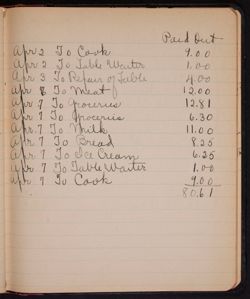 Paid Out
Apr 2 To Cook 9.00
Apr 2 To Table Waiter 1.00
Apr 3 To Repair of Table 4.00
Apr 8 To Meat 12.00
Apr 7 To Groceries 12.81
Apr 7 To Groceries 6.30
Apr 7 To Milk 11.00
Apr 7 To Bread 8.25
Apr 7 To Ice Cream 6.25
Apr 7 To Table Waiter 1.00
Apr 9 To Cook 9.00
80.61